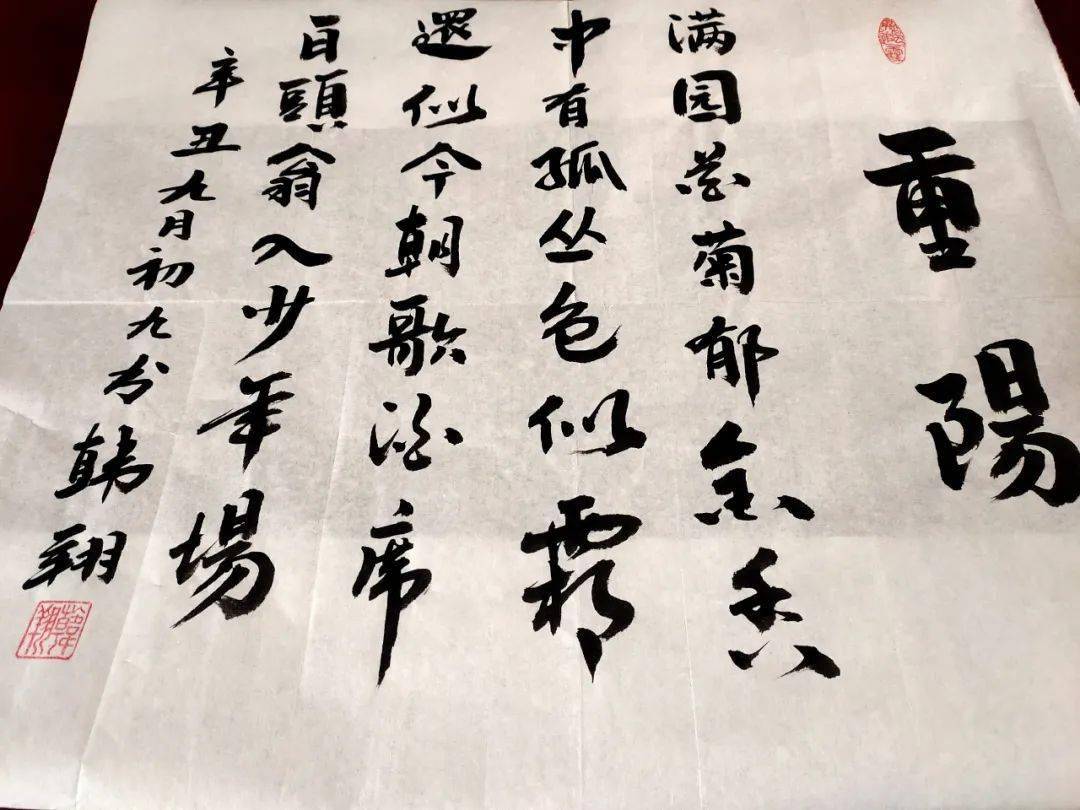 重陽
满园花菊郁金香
中有孤丛色似霜
還似今朝歌酒席
白頭翁入少年場
辛丑九月初九 韩翔